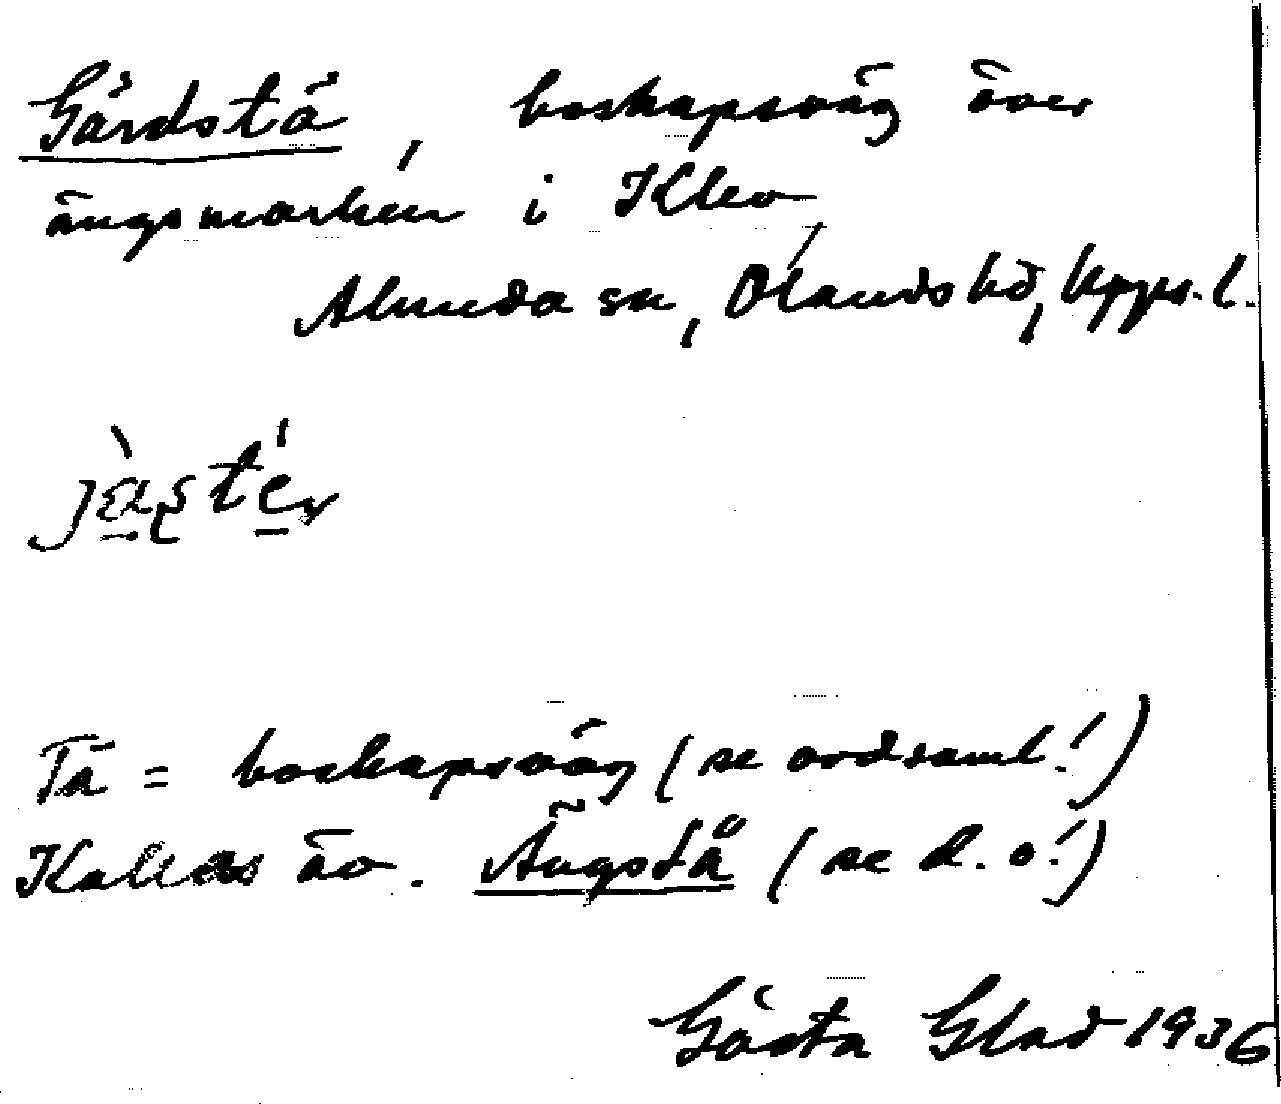 Gårdstå, boskapsväg över
ängsmarken i Klev,
Alunda sn, Olands hd, Upps. l.
Tå = boskapsväg (se ordsaml.!)
Kallas äv. Ängstå (se d. o.!)
Gösta Glad 1936